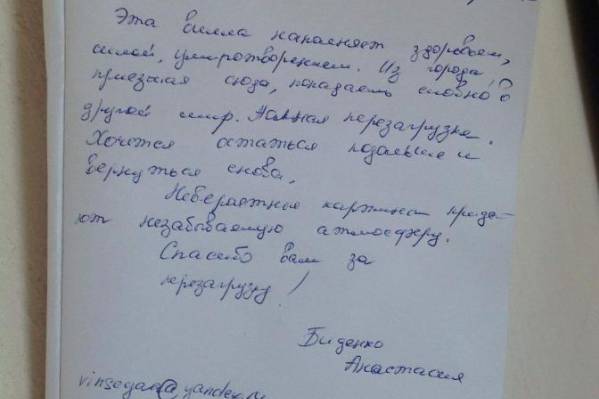 Эта вилла наполняет здоровьем,
силой, умиротворением. Из города,
приезжая сюда, попадаешь словно в
другой мир. Полная перезагрузка.
Хочется остаться подольше и
вернуться снова.
Невероятные картины прида-
ют незабываемую атмосферу.
Спасибо вам за
перезагрузку!
Биденко
Анастасия